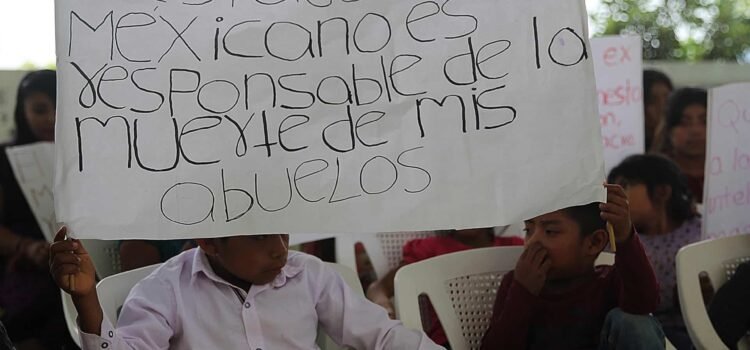 Mexicano es
responsable de la
muerte de mis
abuelos
ex
Qu
a la